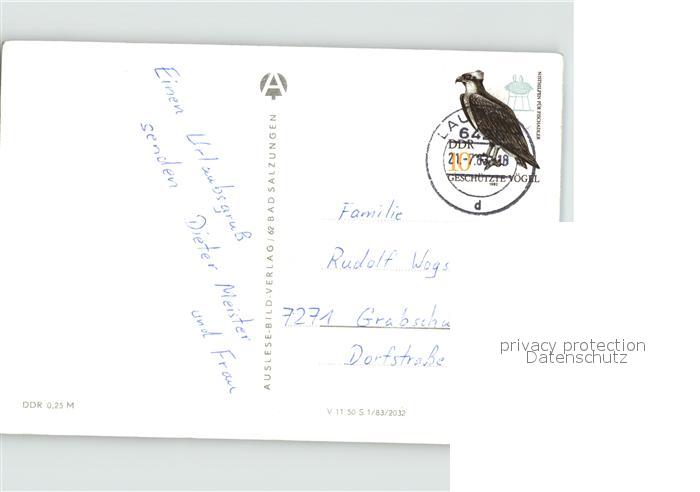 Einen Urlaubsgruß
senden
Dieter Meister
und Frau
AUSLESE-BILD-VERLAG/62 BAD SALZUNGEN
NISTHILFEN FÜR FISCHADLER
LAU
642
DDR
10
21.-7.83-18
GESCHÜTZTE VÖGEL
1982
d
Familie
Rudolf Wogs
7271 Grabschu
Dorfstraße
privacy protection
Datenschutz
DDR 0,25 M
V 11 50 S 1/83/2032